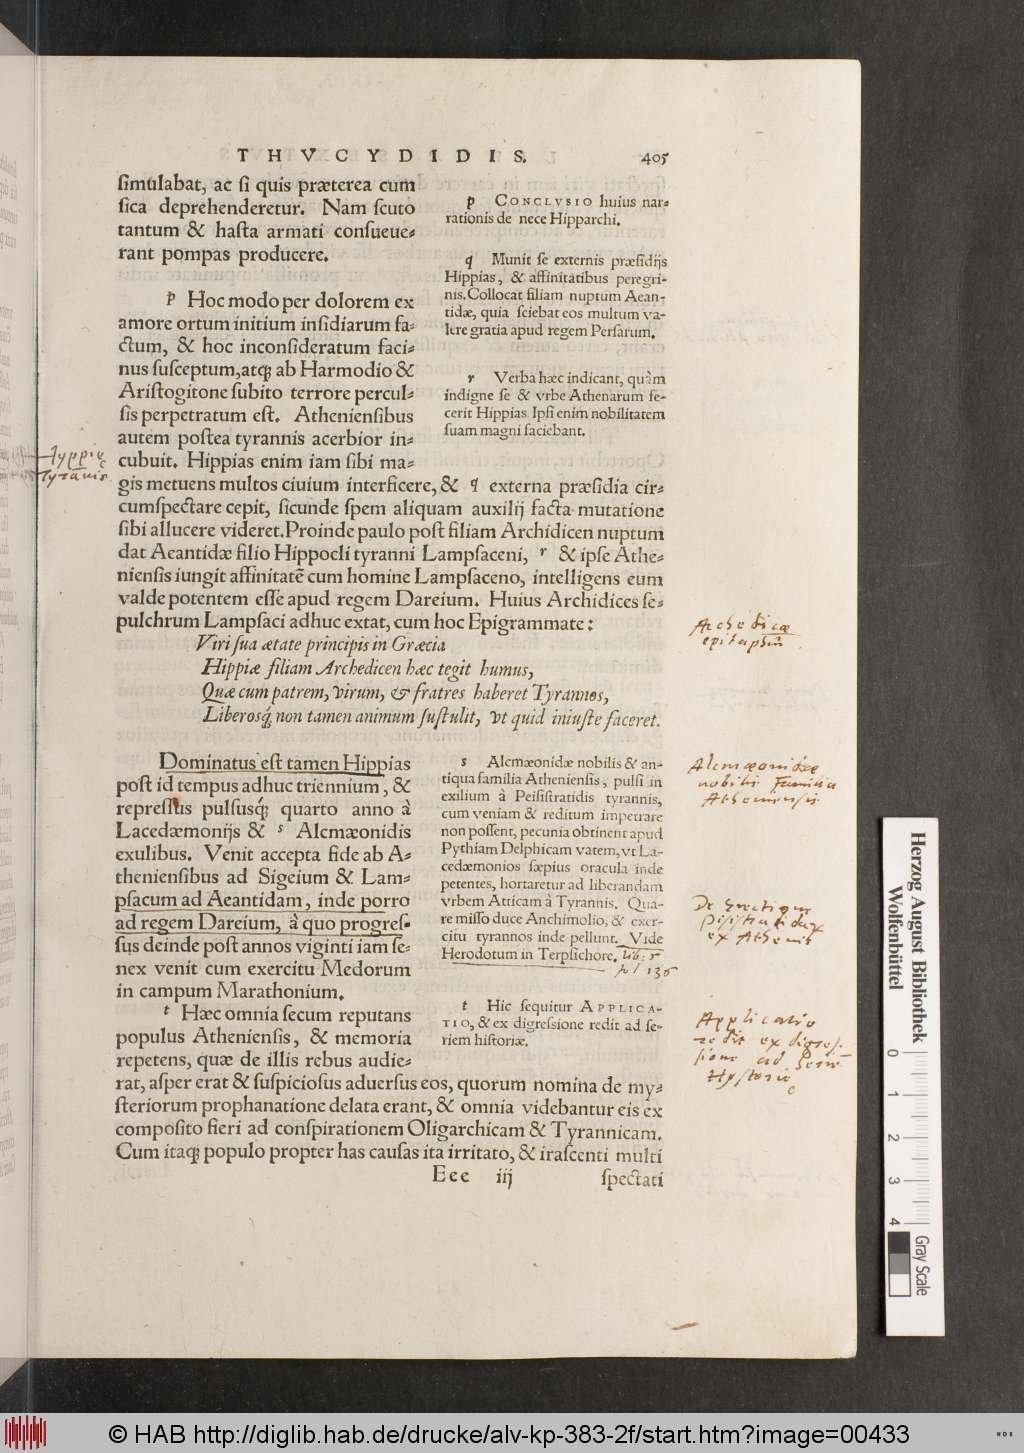 THVCYDIDIS. 405
ſimulabat, ac ſi quis præterea cum
ſica deprehenderetur. Nam ſcuto
tantum & haſta armati conſueue-
rant pompas producere.
p Hoc modo per dolorem ex
amore ortum initium inſidiarum fa-
ctum, & hoc inconſideratum faci-
nus ſuſceptum, atq; ab Harmodio &
Ariſtogitone ſubito terrore percul-
ſis perpetratum eſt. Athenienſibus
autem poſtea tyrannis acerbior in-
cubuit. Hippias enim iam ſibi ma-
gis metuens multos ciuium interficere, & q externa præſidia cir-
cumſpectare cepit, ſicunde ſpem aliquam auxilij facta mutatione
ſibi allucere videret. Proinde paulo poſt filiam Archidicen nuptum
dat Aeantidæ filio Hippocli tyranni Lampſaceni, r & ipſe Athe-
nienſis iungit affinitatē cum homine Lampſaceno, intelligens eum
valde potentem eſſe apud regem Dareium. Huius Archidices ſe-
pulchrum Lampſaci adhuc extat, cum hoc Epigrammate:
Viri ſua ætate principis in Græcia
Hippiæ filiam Archedicen hæc tegit humus,
Quæ cum patrem, virum, & fratres haberet Tyrannos,
Liberosq; non tamen animum ſuſtulit, vt quid iniuſte faceret.
Dominatus eſt tamen Hippias
poſt id tempus adhuc triennium, &
repreſſus pulſusq; quarto anno à
Lacedæmonijs & s Alcmæonidis
exulibus. Venit accepta fide ab A-
thenienſibus ad Sigeium & Lam-
pſacum ad Aeantidam, inde porro
ad regem Dareium, à quo progreſ-
ſus deinde poſt annos viginti iam ſe-
nex venit cum exercitu Medorum
in campum Marathonium.
t Hæc omnia ſecum reputans
populus Athenienſis, & memoria
repetens, quæ de illis rebus audie-
rat, aſper erat & ſuſpicioſus aduerſus eos, quorum nomina de my-
ſteriorum prophanatione delata erant, & omnia videbantur eis ex
compoſito fieri ad conſpirationem Oligarchicam & Tyrannicam.
Cum itaq; populo propter has cauſas ita irritato, & iraſcenti multi
Eee iij ſpectati
p CONCLVSIO huius nar-
rationis de nece Hipparchi.
q Munit ſe externis præſidijs
Hippias, & affinitatibus peregri-
nis. Collocat filiam nuptum Aean-
tidæ, quia ſciebat eos multum va-
lere gratia apud regem Perſarum.
r Verba hæc indicant, quàm
indigne ſe & vrbe Athenarum fe-
cerit Hippias. Ipſi enim nobilitatem
ſuam magni faciebant.
s Alcmæonidæ nobilis & an-
tiqua familia Athenienſis, pulſi in
exilium à Peiſiſtratidis tyrannis,
cum veniam & reditum impetrare
non poſſent, pecunia obtinent apud
Pythiam Delphicam vatem, vt La-
cedæmonios ſæpius oracula inde
petentes, hortaretur ad liberandam
vrbem Atticam à Tyrannis. Qua-
re miſſo duce Anchimolio, & exer-
citu tyrannos inde pellunt. Vide
Herodotum in Terpſichore. lib: 5
fol 136
t Hic ſequitur APPLICA-
TIO, & ex digreſſione redit ad ſe-
riem hiſtoriæ.
Archedicæ
epitaphiū
Alcmæonidæ
nobilis Familia
Atheniensis
ex Athenis
Applicatio
redit ex digres-
sione ad Seriē
Hystoriæ
Herzog August Bibliothek
Wolfenbüttel
0 1 2 3 4
Gray Scale
© HAB http://diglib.hab.de/drucke/alv-kp-383-2f/start.htm?image=00433